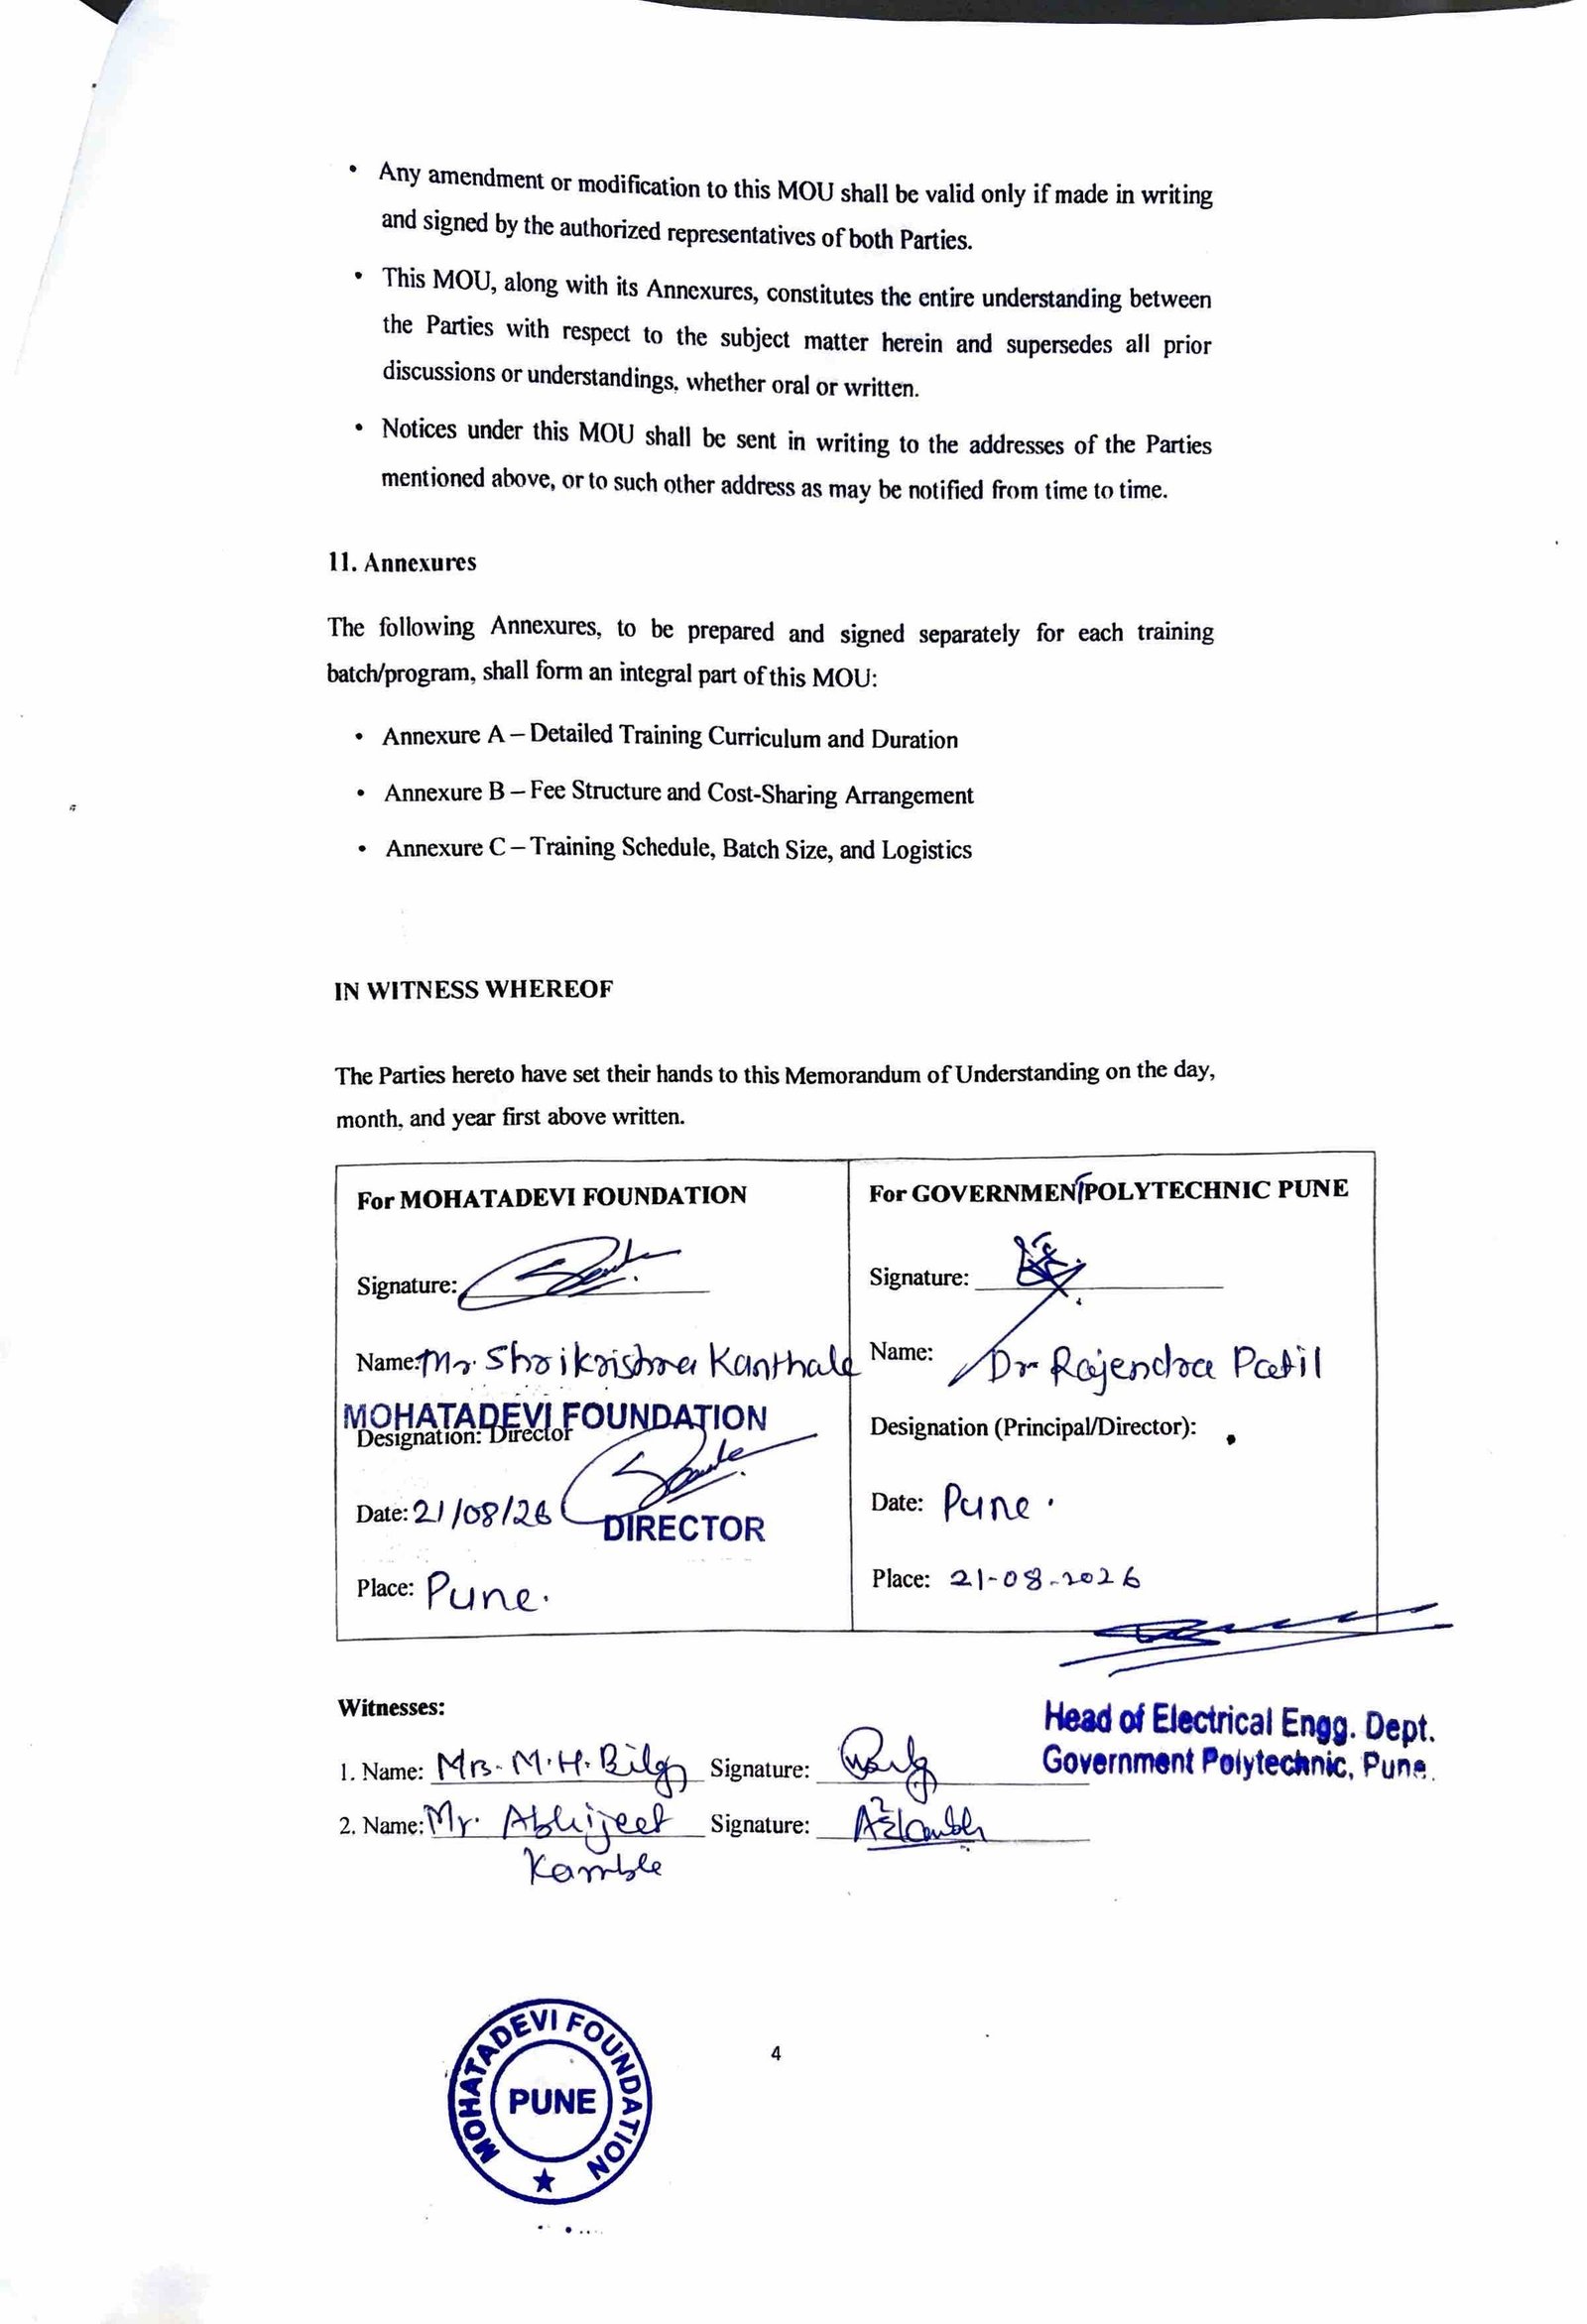 • Any amendment or modification to this MOU shall be valid only if made in writing
and signed by the authorized representatives of both Parties.
• This MOU, along with its Annexures, constitutes the entire understanding between
the Parties with respect to the subject matter herein and supersedes all prior
discussions or understandings, whether oral or written.
• Notices under this MOU shall be sent in writing to the addresses of the Parties
mentioned above, or to such other address as may be notified from time to time.
11. Annexures
The following Annexures, to be prepared and signed separately for each training
batch/program, shall form an integral part of this MOU:
• Annexure A – Detailed Training Curriculum and Duration
• Annexure B – Fee Structure and Cost-Sharing Arrangement
• Annexure C – Training Schedule, Batch Size, and Logistics
IN WITNESS WHEREOF
The Parties hereto have set their hands to this Memorandum of Understanding on the day,
month, and year first above written.
For MOHATADEVI FOUNDATION
Signature:
Name: Mr. Shrikrishna Kanthale
MOHATADEVI FOUNDATION
Designation: Director
Date: 21/08/26
DIRECTOR
Place: Pune.
For GOVERNMENT POLYTECHNIC PUNE
Signature:
Name: Dr Rajendra Patil
Designation (Principal/Director):
Date: Pune.
Place: 21-08-2026
Head of Electrical Engg. Dept.
Government Polytechnic, Pune.
Witnesses:
1. Name: Mrs. M.H. Signature:
2. Name: Mr. Abhijeet Signature:
Kamble
MOHATADEVI FOUNDATION
PUNE
4